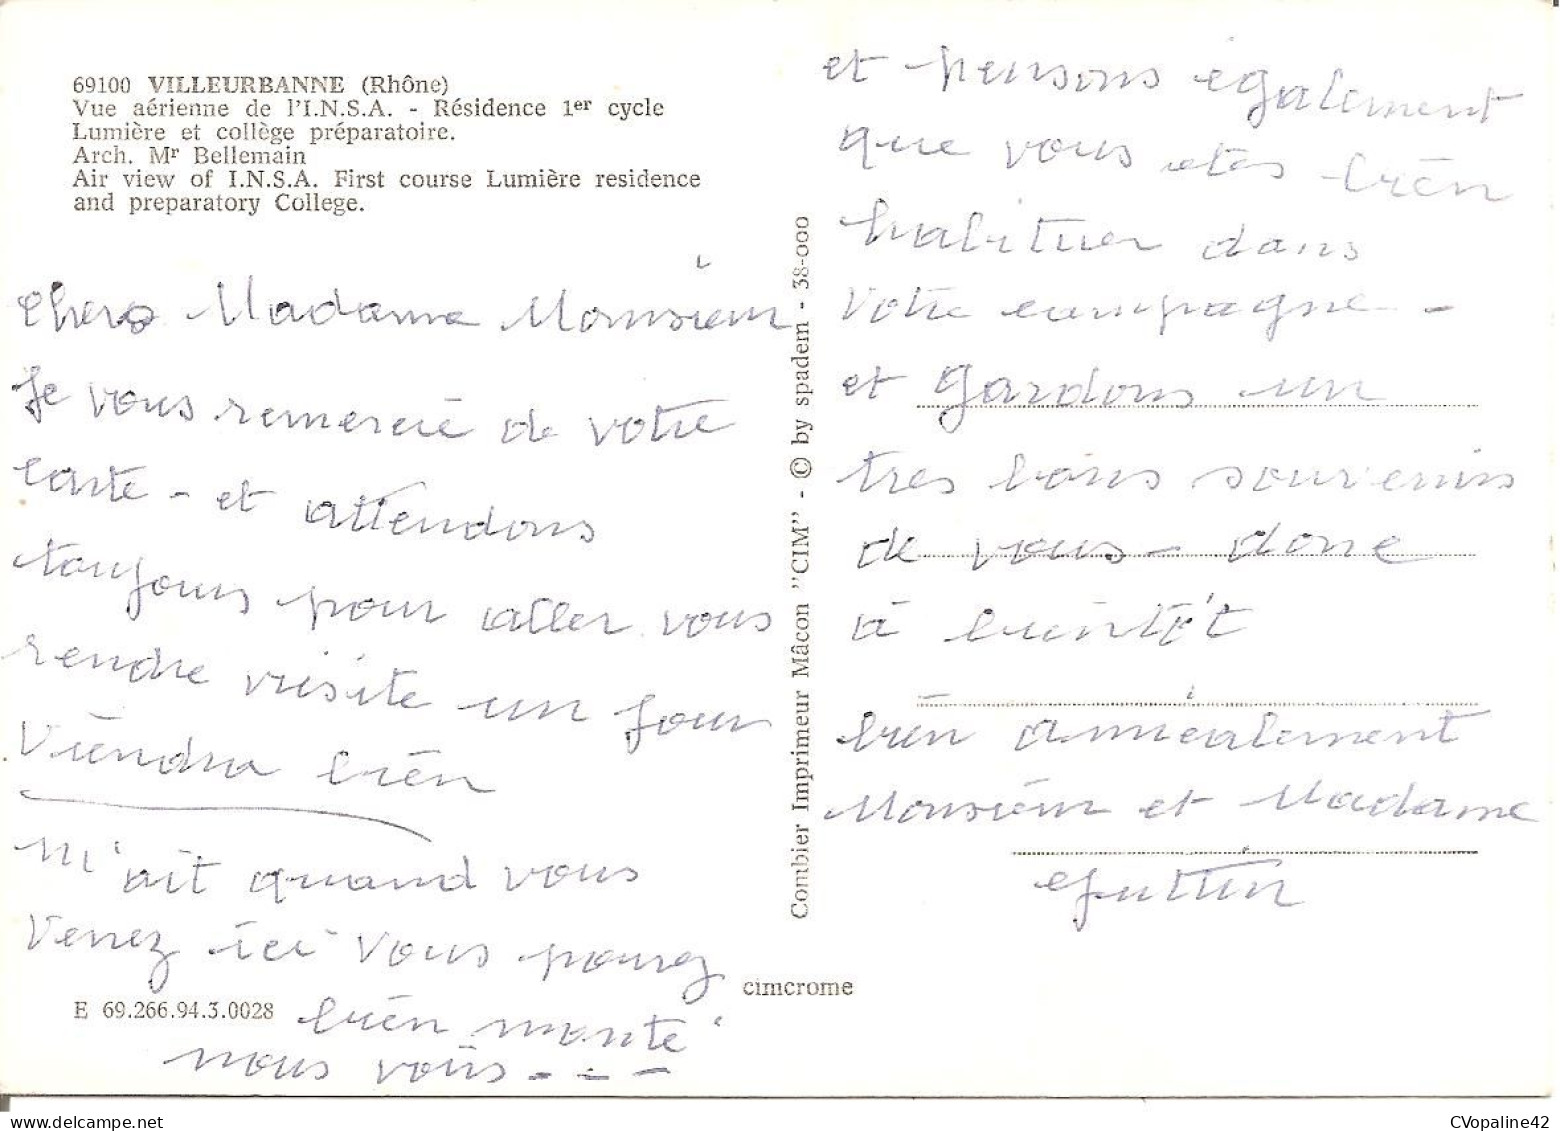 69100 VILLEURBANNE (Rhône)
Vue aérienne de l'I.N.S.A. - Résidence 1er cycle
Lumière et collège préparatoire.
Arch. Mr Bellemain
Air view of I.N.S.A. First course Lumière residence
and preparatory College.
Chers Madame Monsieur
Je vous remercie de votre
carte - et attendons
toujours pour aller vous
rendre visite un jour
viendra bien
m'ait quand vous
venez ici vous pourez
E 69.266.94.3.0028
bien monté
nous voir - - -
Combier Imprimeur Mâcon "CIM" - © by spadem - 38-000
cimcrome
et pensons également
que vous etes bien
habituer dans
votre campagne -
et gardons un
tres bons souvenirs
de vous - donc
à bientôt
bien amicalement
Monsieur et Madame
CVopaline42